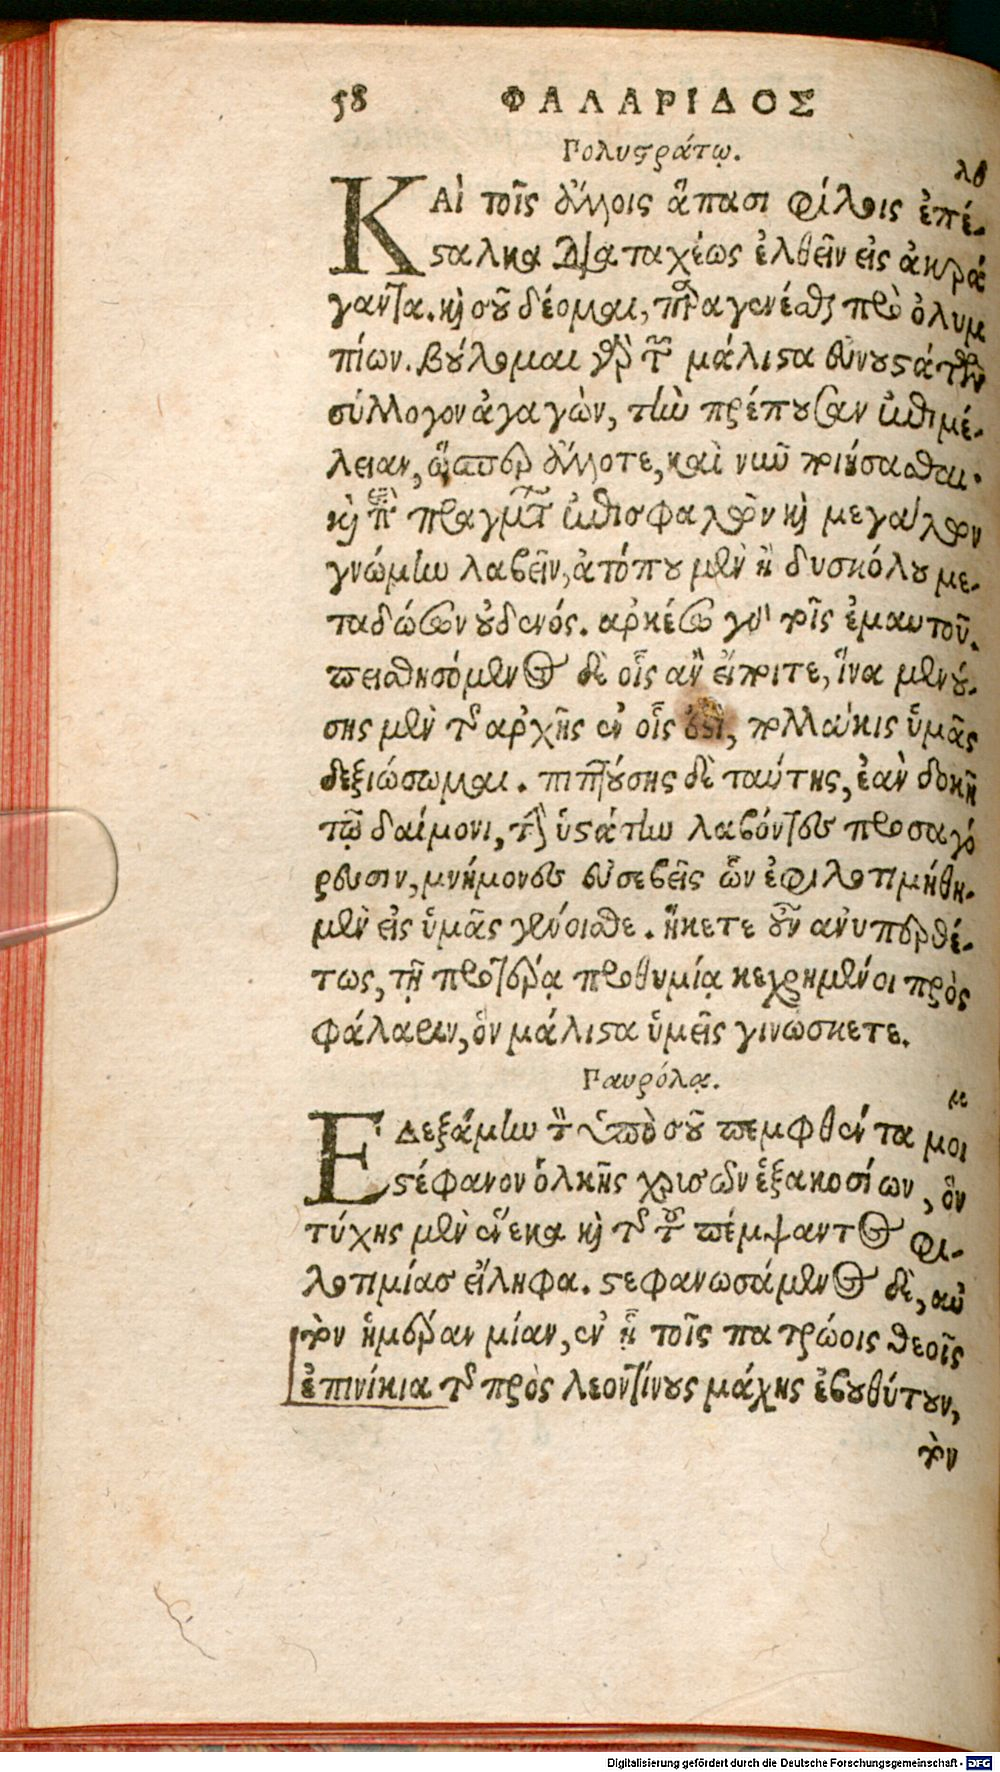 58 ΦΑΛΑΡΙΔΟΣ
Πολυστράτῳ. λθ
ΚΑὶ τοῖς ἄλλοις ἅπασι φίλοις ἐπέ-
σταλκα διὰ ταχέως ἐλθεῖν εἰς ἀκρά
γαντα. καὶ σοῦ δέομαι, παραγενέσθαι πρὸ ὀλυμ
πίων. βούλομαι γὰρ τῶν μάλιστα εὐνουστάτων
σύλλογον ἀγαγὼν, τὴν πρέπουσαν ἐπιμέ-
λειαν, ὥσπερ ἄλλοτε, καὶ νῦν ποιήσασθαι.
καὶ περὶ πραγμάτων ἐπισφαλῶν καὶ μεγάλων
γνώμην λαβεῖν, ἀτόπου μὲν ἢ δυσκόλου με-
ταδώσων οὐδενός. ἀρκέσω γὰρ τοῖς ἐμαυτοῦ.
πεισθησόμενος δὲ οἷς ἂν εἴποιτε, ἵνα μενού-
σης μὲν τῆς ἀρχῆς ἐν οἷς ἐστι, πολλάκις ὑμᾶς
δεξιώσωμαι. πιπτούσης δὲ ταύτης, ἐὰν δοκῇ
τῷ δαίμονι, τὴν ὑστάτην λαβόντες προσαγό
ρευσιν, μνήμονες εὐσεβεῖς ὧν ἐφιλοτιμήθη-
μεν εἰς ὑμᾶς γένοισθε. ἥκετε οὖν ἀνυπερθέ-
τως, τῇ προτέρᾳ προθυμίᾳ κεχρημένοι πρὸς
φάλαριν, ὃν μάλιστα ὑμεῖς γινώσκετε.
Γαυρόλᾳ. μ
ΕΔεξάμην τὸν ὑπὸ σοῦ πεμφθέντα μοι
στέφανον ὁλκῆς χρυσῶν ἑξακοσίων, ὃν
τύχης μὲν ἕνεκα καὶ τῆς τοῦ πέμψαντος φι-
λοτιμίας εἴληφα. στεφανωσάμενος δὲ, αὐ
τὸν ἡμέραν μίαν, ἐν ᾗ τοῖς πατρώοις θεοῖς
ἐπινίκια τῆς πρὸς λεοντίνους μάχης ἐβουθύτουν,
τὸν
Digitalisierung gefördert durch die Deutsche Forschungsgemeinschaft - DFG